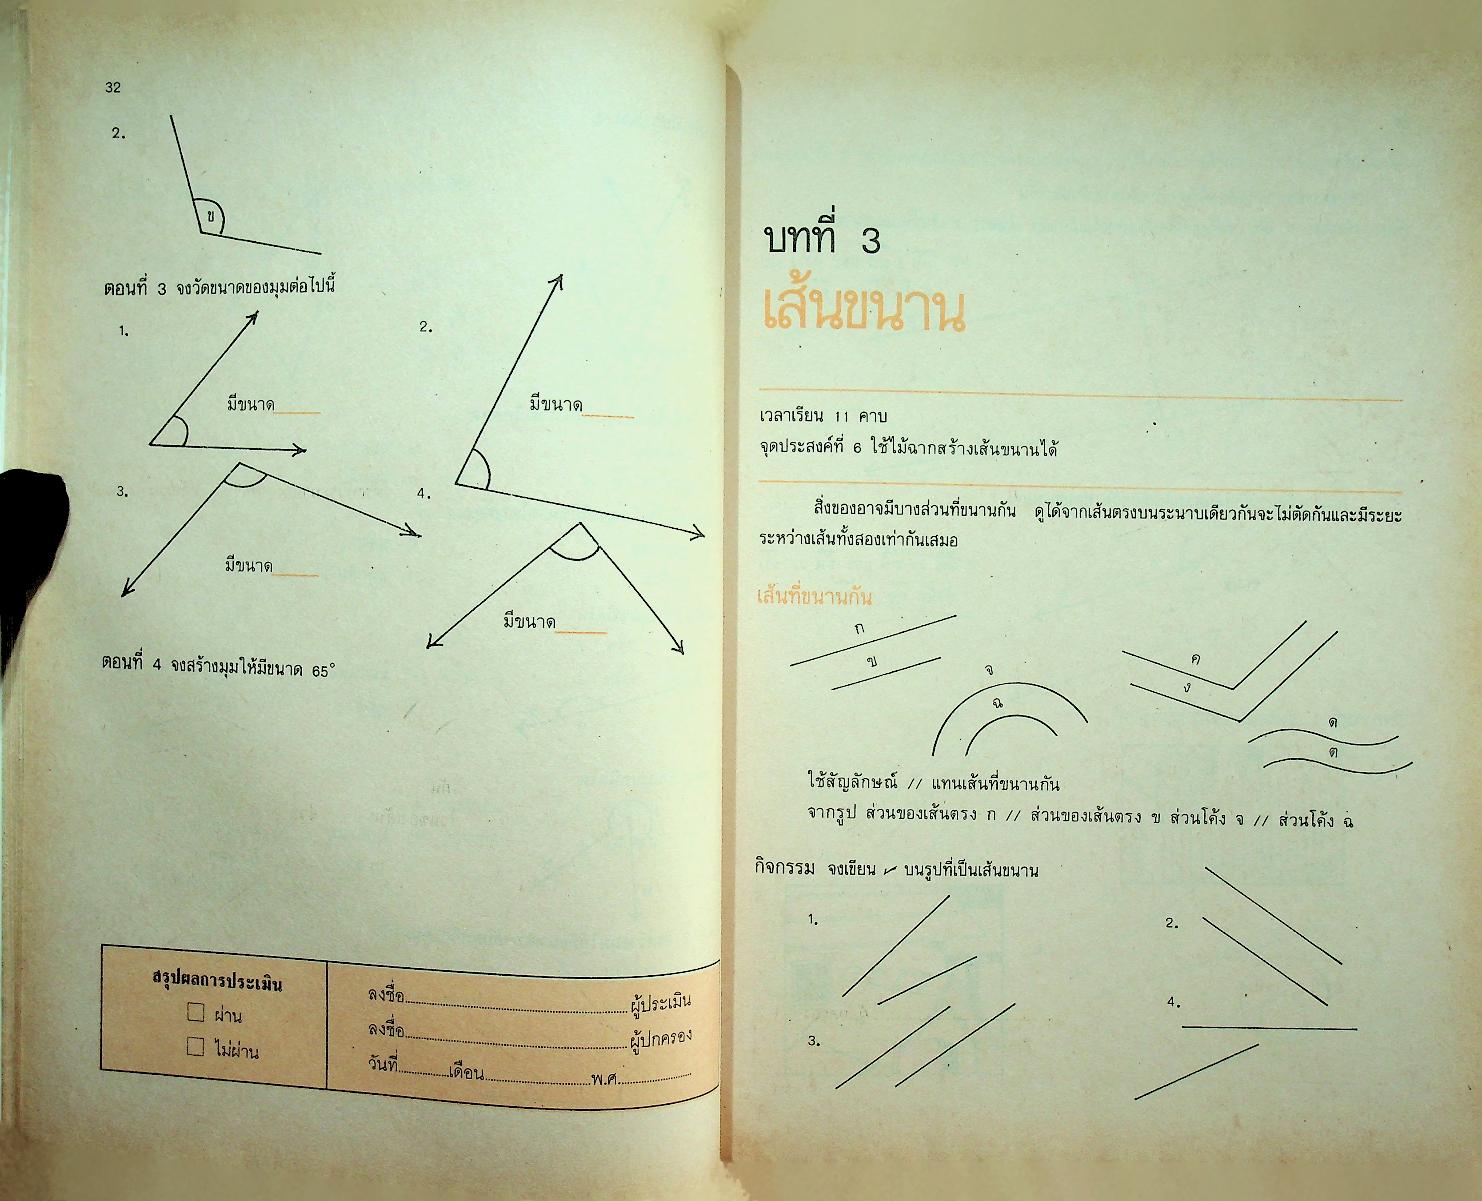 32
2.
ข
ตอนที่ 3 จงวัดขนาดของมุมต่อไปนี้
1.
มีขนาด
2.
มีขนาด
3.
มีขนาด
4.
มีขนาด
ตอนที่ 4 จงสร้างมุมให้มีขนาด 65°
สรุปผลการประเมิน
ผ่าน
ไม่ผ่าน
ลงชื่อ ผู้ประเมิน
ลงชื่อ ผู้ปกครอง
วันที่ เดือน พ.ศ.
บทที่ 3
เส้นขนาน
เวลาเรียน 11 คาบ
จุดประสงค์ที่ 6 ใช้ไม้ฉากสร้างเส้นขนานได้
สิ่งของอาจมีบางส่วนที่ขนานกัน ดูได้จากเส้นตรงบนระนาบเดียวกันจะไม่ตัดกันและมีระยะ
ระหว่างเส้นทั้งสองเท่ากันเสมอ
เส้นที่ขนานกัน
ก
ข
จ
ฉ
ค
ง
ด
ต
ใช้สัญลักษณ์ // แทนเส้นที่ขนานกัน
จากรูป ส่วนของเส้นตรง ก // ส่วนของเส้นตรง ข ส่วนโค้ง จ // ส่วนโค้ง ฉ
กิจกรรม จงเขียน ✓ บนรูปที่เป็นเส้นขนาน
1.
2.
3.
4.